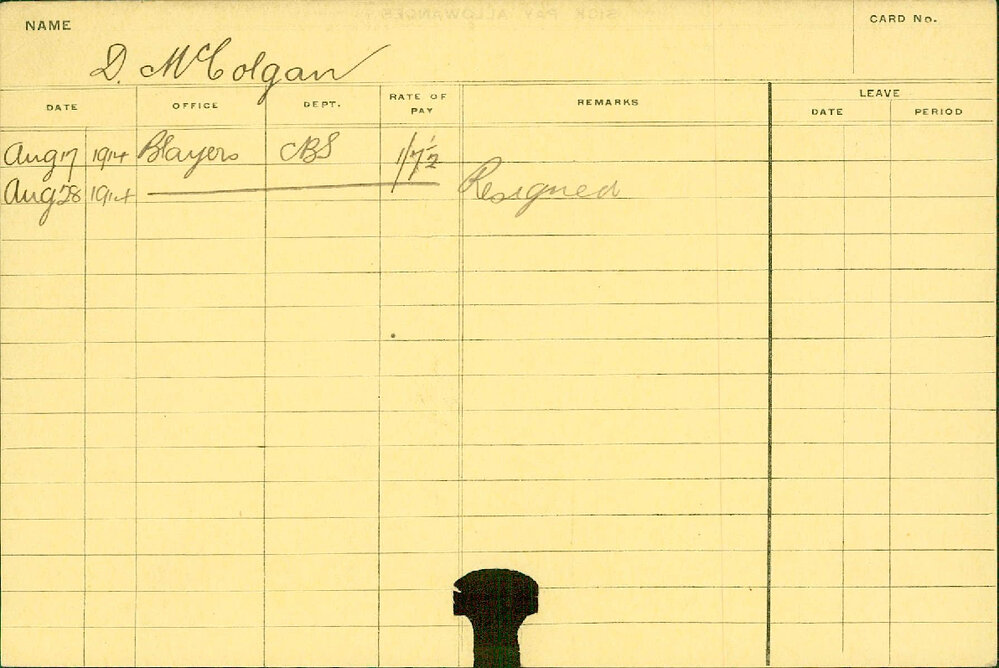 NAME
CARD No.
D. McColgan
DATE OFFICE DEPT. RATE OF PAY REMARKS LEAVE
DATE PERIOD
Aug 17 1914 Blayers CBS 1/7½
Aug 28 1914 Resigned